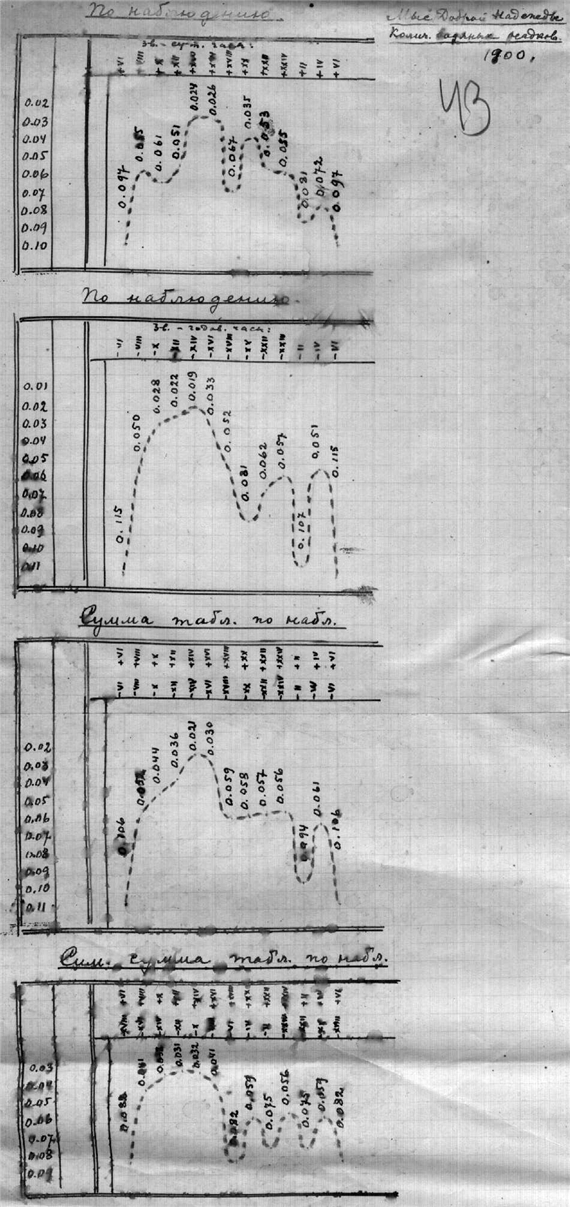 По наблюдению.
Мыс Доброй Надежды
Колич. водяных осадков.
1900.
43
Зв. - сут. часы:
+VI +VIII +X +XII +XIV +XVI +XVIII +XX +XXII +XXIV +II +IV +VI
0.02
0.03
0.04
0.05
0.06
0.07
0.08
0.09
0.10
0.097 0.055 0.061 0.051 0.024 0.026 0.067 0.035 0.053 0.055 0.081 0.072 0.097
По наблюдению.
Зв. - годов. часы:
-VI -VIII -X -XII -XIV -XVI -XVIII -XX -XXII -XXIV -II -IV -VI
0.01
0.02
0.03
0.04
0.05
0.06
0.07
0.08
0.09
0.10
0.11
0.115 0.050 0.028 0.022 0.019 0.033 0.052 0.081 0.062 0.057 0.107 0.051 0.115
Сумма табл. по набл.
+VI +VIII +X +XII +XIV +XVI +XVIII +XX +XXII +XXIV +II +IV +VI
-VI -VIII -X -XII -XIV -XVI -XVIII -XX -XXII -XXIV -II -IV -VI
0.02
0.03
0.04
0.05
0.06
0.07
0.08
0.09
0.10
0.11
0.106 0.052 0.044 0.036 0.021 0.030 0.059 0.058 0.057 0.056 0.094 0.061 0.106
Сим. сумма табл. по набл.
+VI +VIII +XIV +XVI +XVIII +XX +XXII +XXIV +II +IV +VI
0.03
0.04
0.05
0.06
0.07
0.08
0.09
0.082 0.041 0.032 0.031 0.032 0.041 0.082 0.059 0.075 0.056 0.075 0.059 0.082